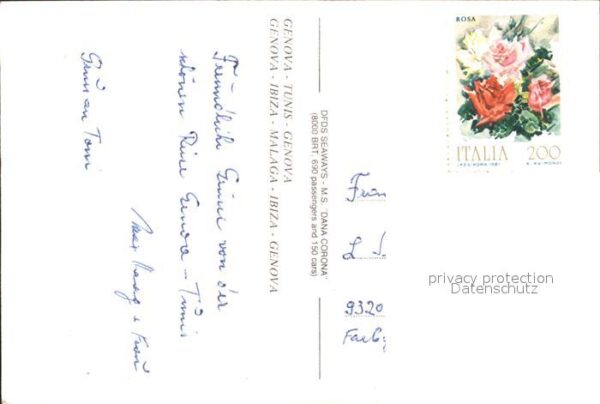 Freundliche Grüsse von der
schönen Reise Genova - Tunis
Max Haag & Frau
Gruss an Toni
GENOVA - TUNIS - GENOVA
GENOVA - IBIZA - MALAGA - IBIZA - GENOVA
DFDS SEAWAYS - M.S. "DANA CORONA"
(8000 BRT, 690 passengers and 150 cars)
ROSA
ITALIA 200
I.P.Z.S. ROMA 1981
9320
privacy protection
Datenschutz